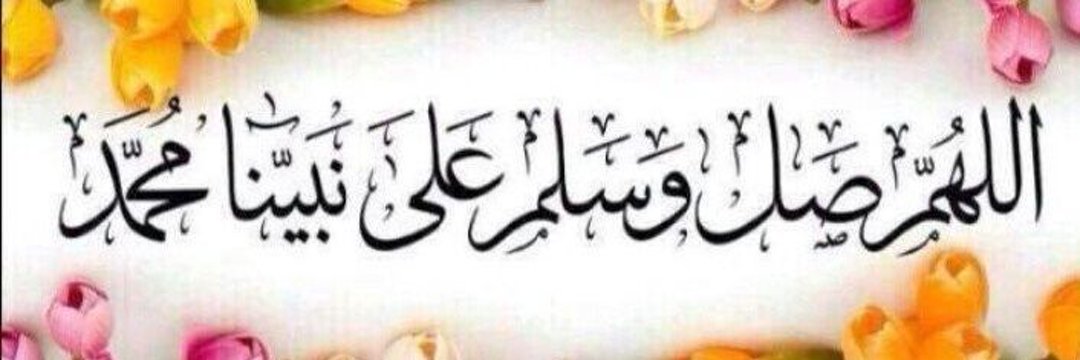 اللهُمَّ صَلِ وَسَلمِ عَلى نَبيَّنا مُحمَّدَ